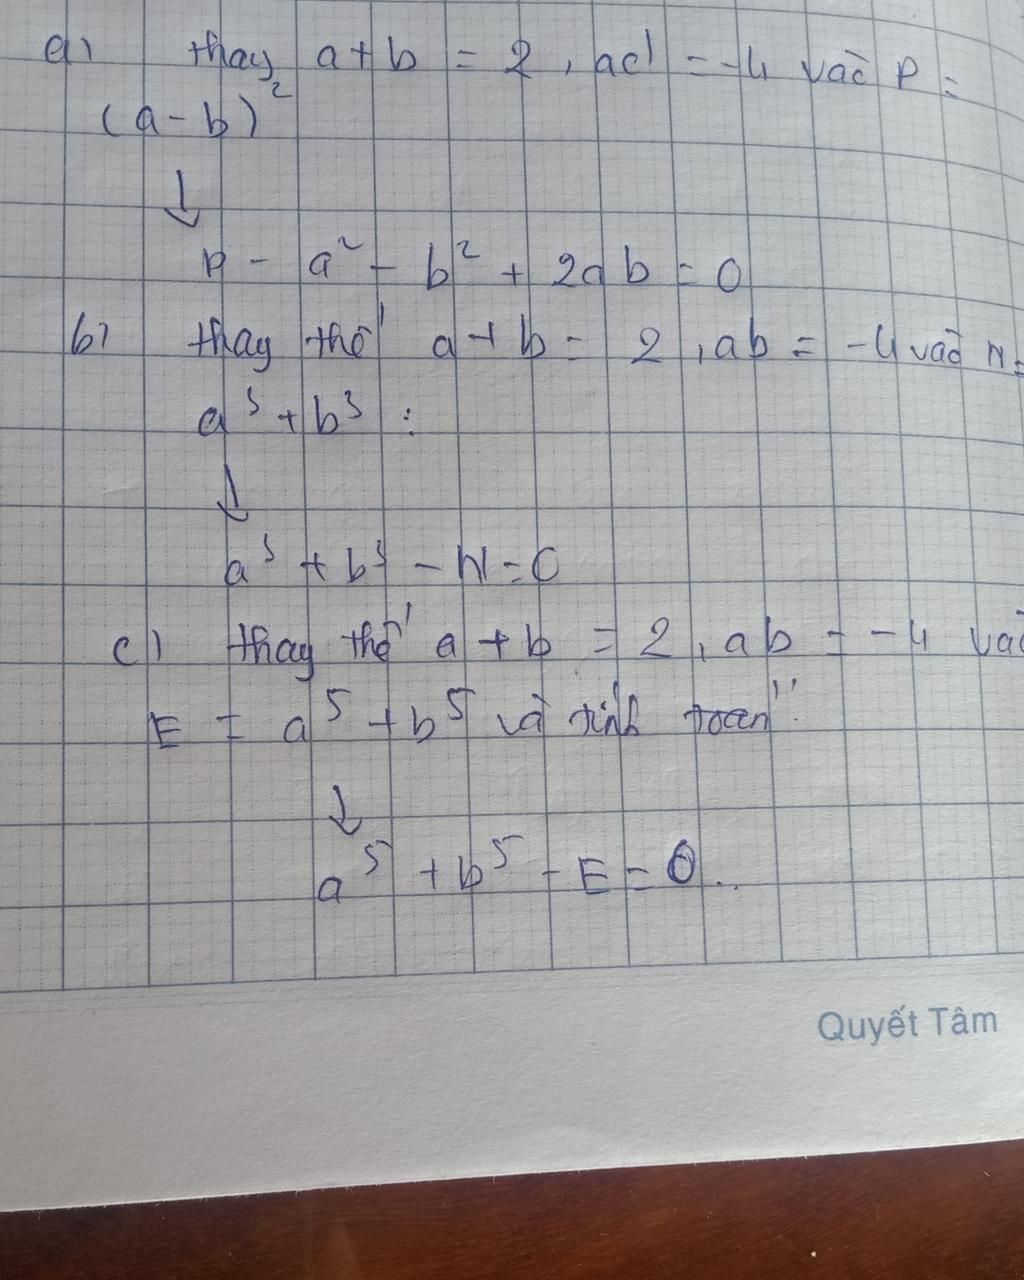 a) thay a + b = 2, ad = -4 vào P =
(a - b)²
↓
P - a² - b² + 2ab = 0
b) thay thế a + b = 2, ab = -4 vào N =
a³ + b³ :
↓
a³ + b³ - N = 0
c) thay thế a + b = 2, ab = -4 vào
E = a⁵ + b⁵ và tính toán :
↓
a⁵ + b⁵ - E = 0..
Quyết Tâm